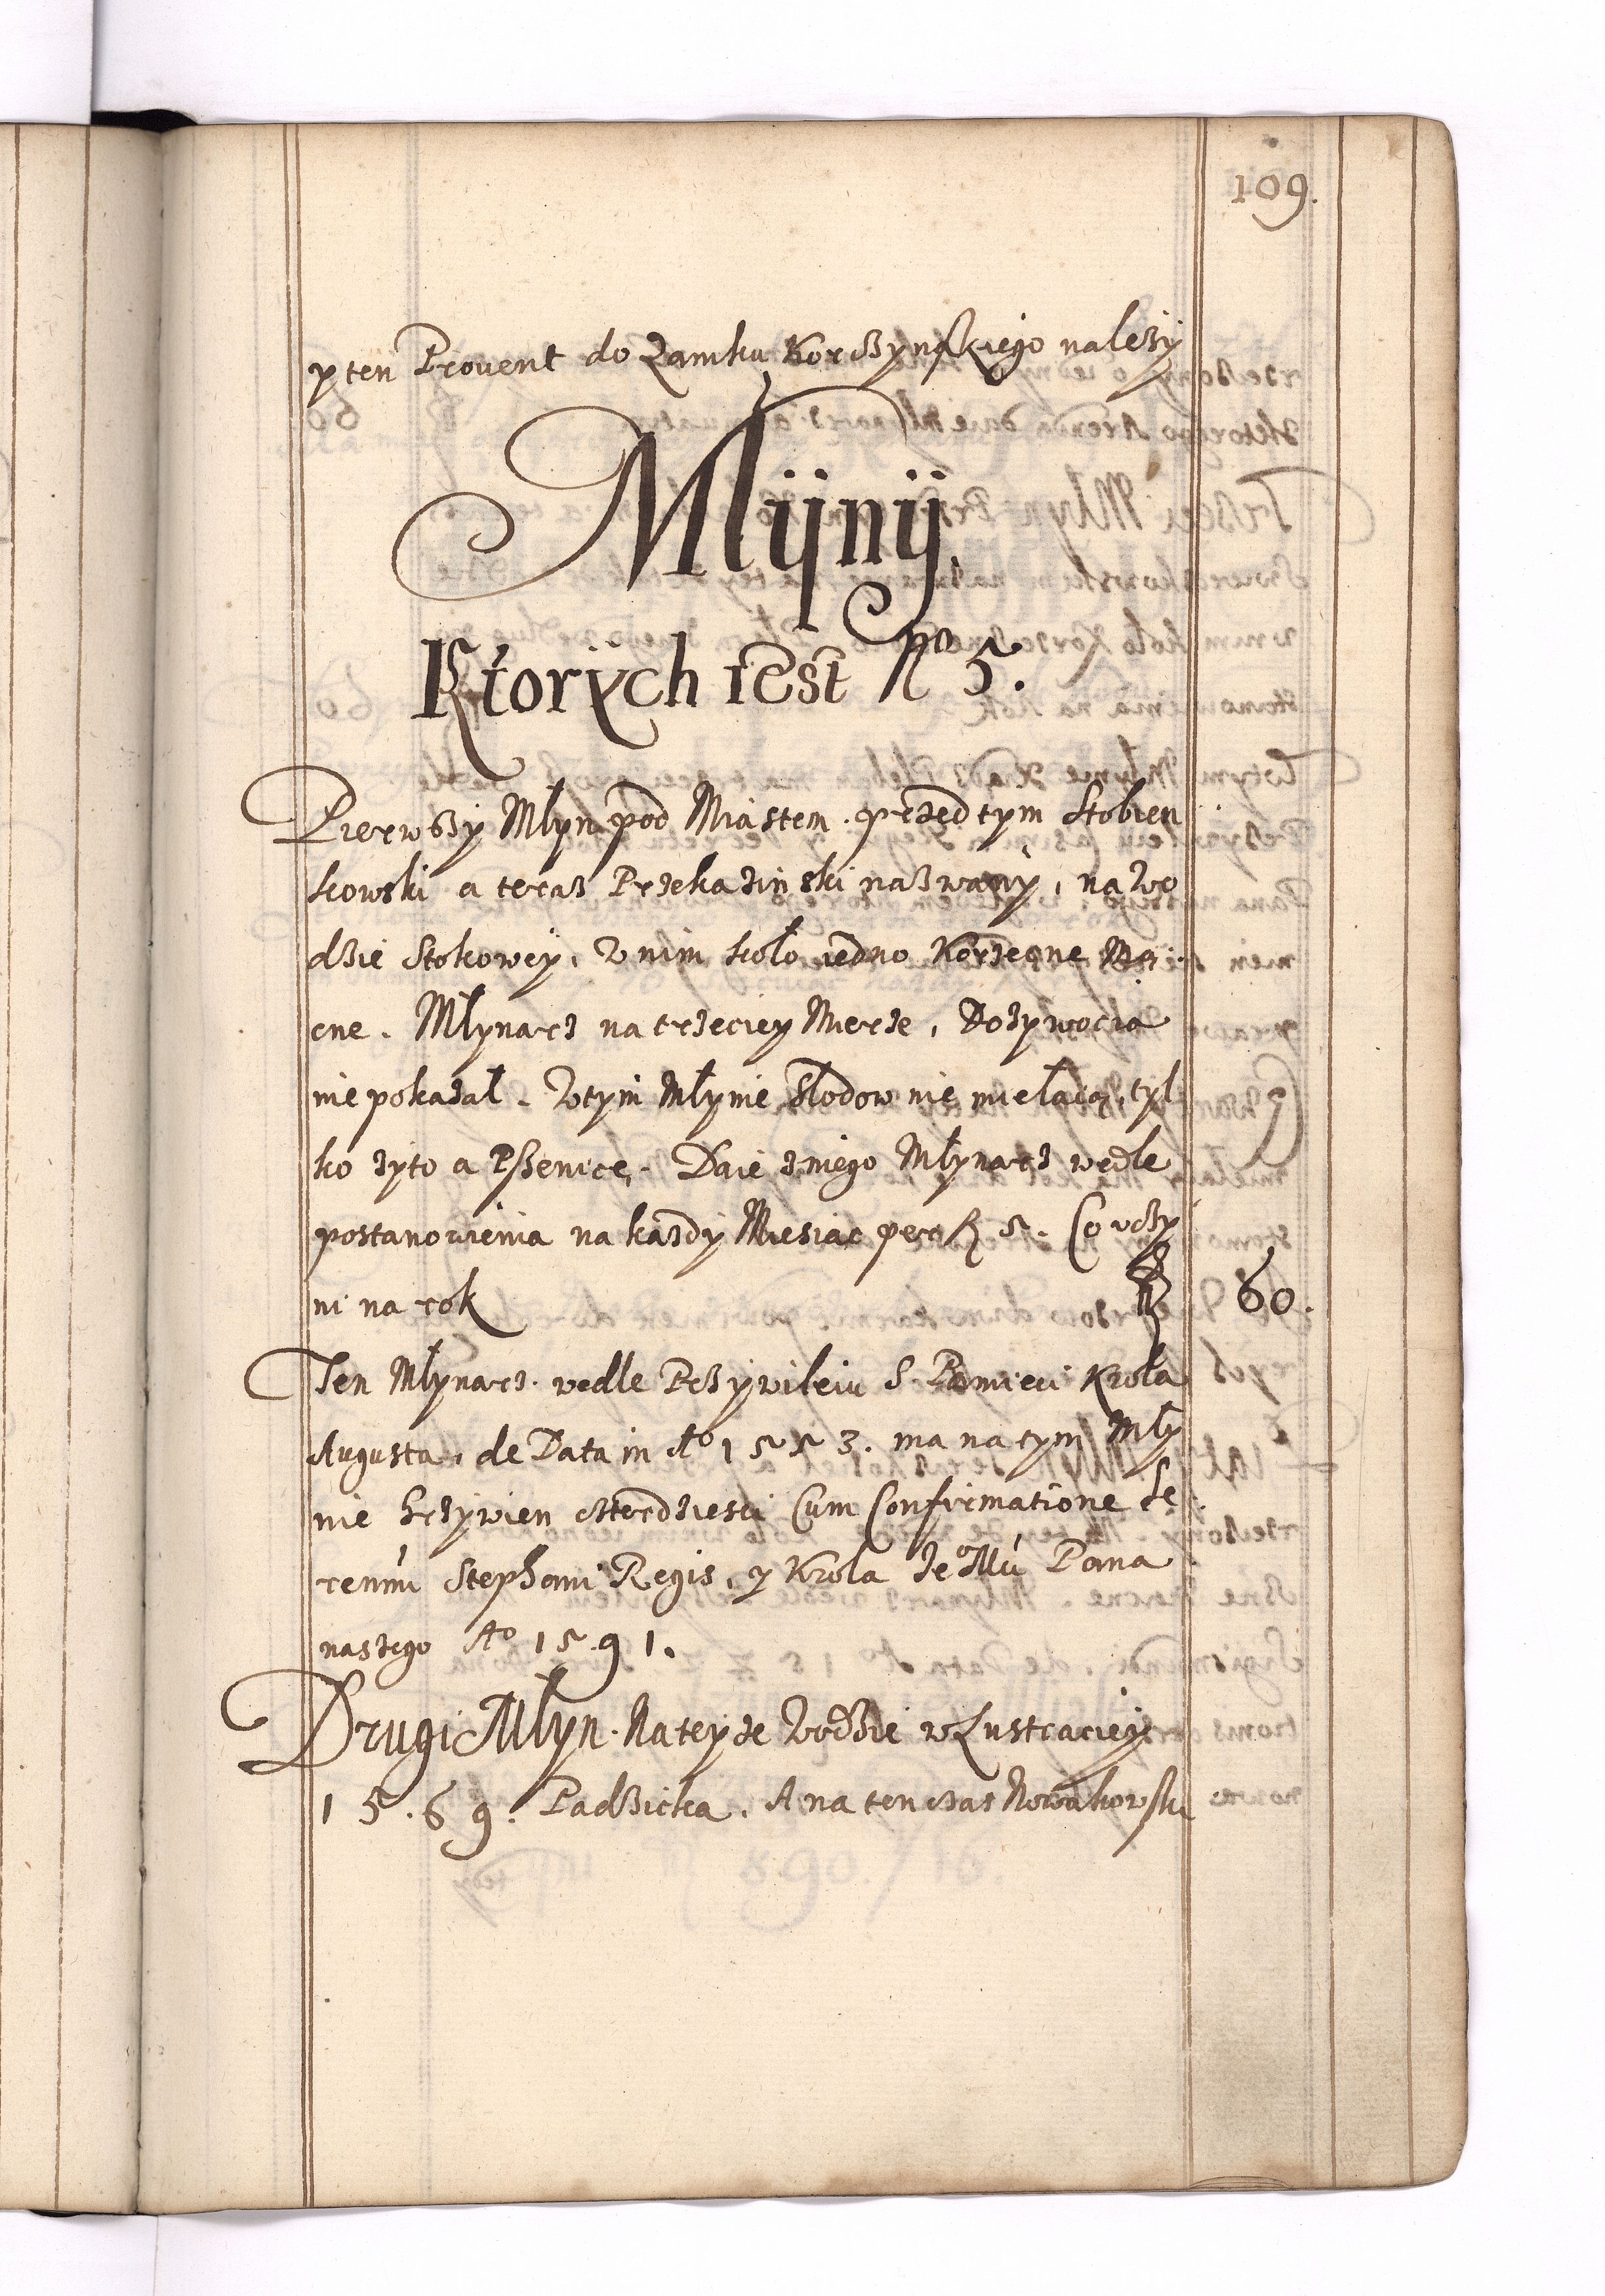 109.
y ten Prouent do Zamku Korczynskiego nalezy
Mlijnij,
Ktorÿch iest No 5.
Pierwßy Młyn pod Miastem. przed tym Stobien
kowski a teraz Przekazinski nazwany, na wo
dzie Stokowey, W nim koło iedno Korzecne Ma
cne. Młynarz na trzeciey Mierze, Dozywocia
nie pokazał. W tym Młynie Słodow nie mielaią, tyl
ko zyto a Pßenice. Daie z niego Młynarz wedle
postanowienia na kazdy Miesiac per fl 5. Co uczy
ni na rok fl 60.
Ten Młynarz. wedle Przywileiu S. Pamieci Krola
Augusta, de Data in Ao 1553. ma na tym Mły
nie hrzywien czterdziesci Cum Confirmatione Se
renmi Stephani Regis, y Krola Jeo Mci Pana
naszego Ao 1591.
Drugi Młyn. Na teyze Wodzie w Lustraciey
1569. Padzicka. A na ten czas Nowakowski